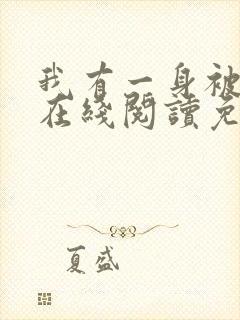 我有一身被
在綫閱讀免
夏盛